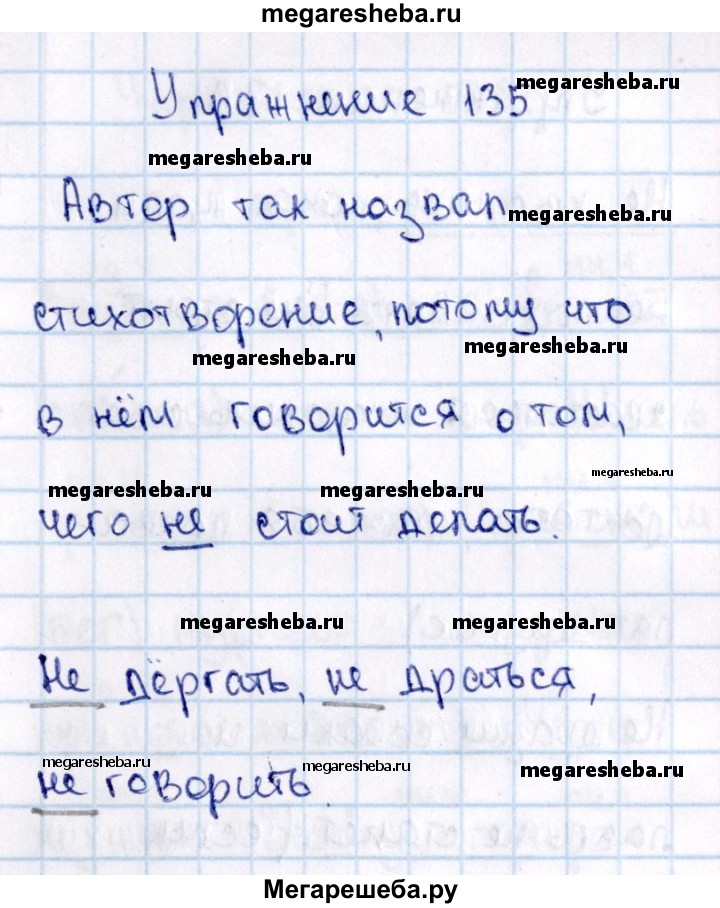 megaresheba.ru
Упражнение 135
megaresheba.ru
megaresheba.ru
Автор так назвал
megaresheba.ru
стихотворение, потому что
megaresheba.ru
megaresheba.ru
в нём говорится о том,
megaresheba.ru
megaresheba.ru
megaresheba.ru
чего не стоит делать.
megaresheba.ru
megaresheba.ru
Не дёргать, не драться,
megaresheba.ru
megaresheba.ru
megaresheba.ru
не говорить.
Мегарешеба.ру